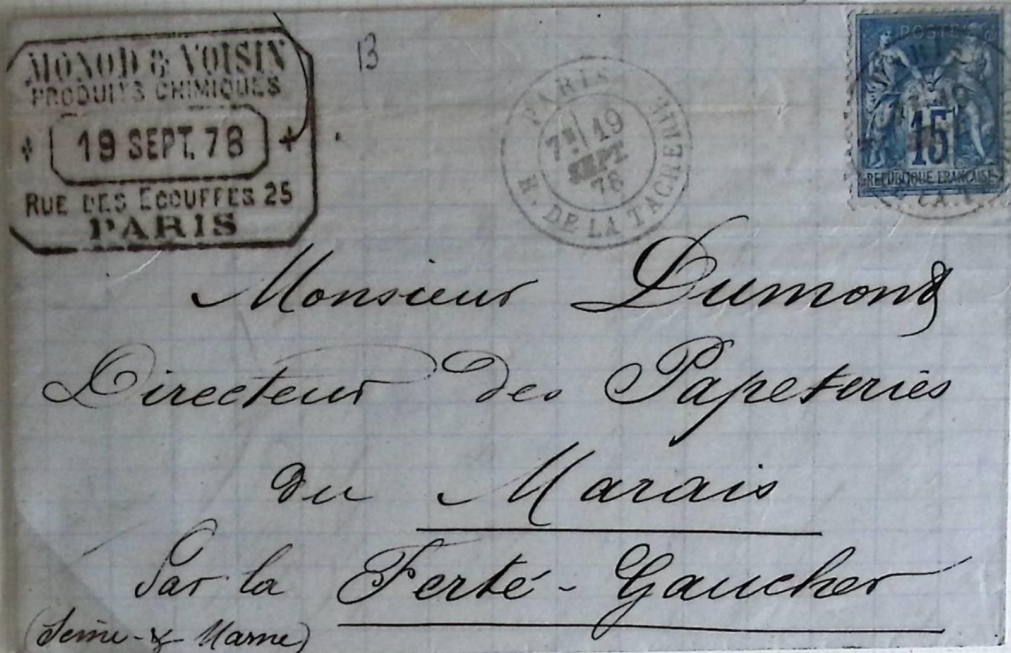 MONOD & VOISIN
PRODUITS CHIMIQUES
19 SEPT. 78
RUE DES ECOUFFES 25
PARIS
13
PARIS
7E 19
SEPT
78
R. DE LA TACHERIE
POSTES
15
REPUBLIQUE FRANCAISE
Monsieur Dumont
Directeur des Papeteries
du Marais
Par la Ferté-Gaucher
(Seine-&-Marne)